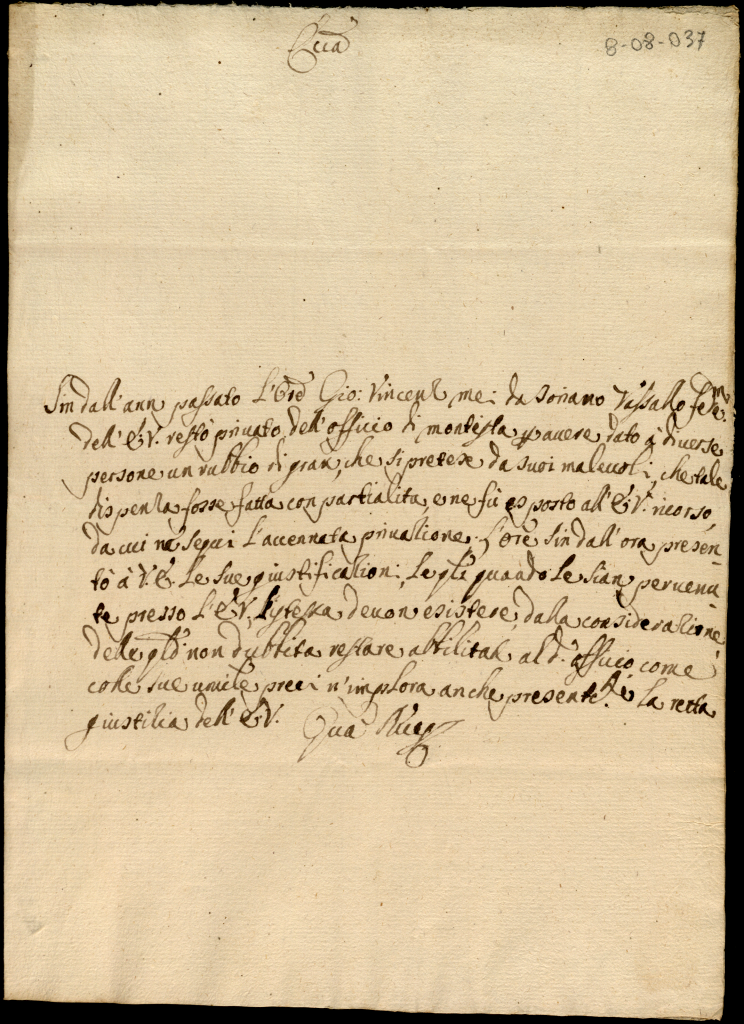 Ecc.za
8-08-037
Sin dall'ann passato L'Ore Gio: Vincenz da Soriano Vassallo fe.mo
dell'E.V. restò privato dell'officio di montista p avere dato à diverse
persone un rubbio di gran, che si pretese da suoi malevoli, che tale
dispenza fosse fatta con partialita, e ne fù esposto all'E.V. ricorso,
da cui ne seguì l'accennata privatione. L'Ore sin dall'ora presen-
tò à V.E. le sue giustificationi, le qli quando le sian pervenu-
te presso L'E.V. l'istessa devon esistere, dalla consideratione
delle qli non dubbita restare abilitat al d.o officio, come
colle sue umile preci n'implora anche presente.te la retta
giustitia dell'E.V. Qua